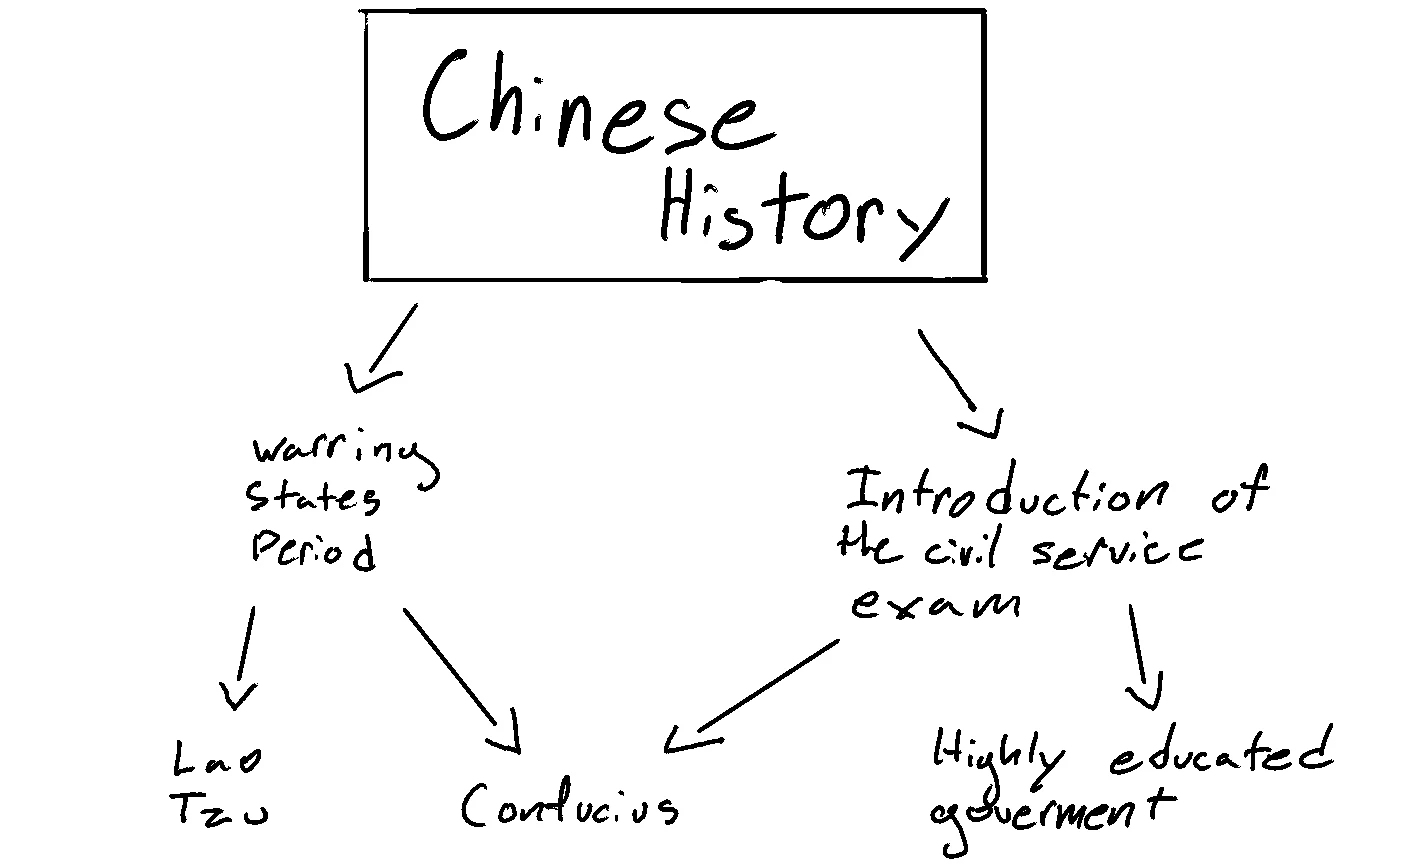 Chinese
History
Warring
States
Period
Introduction of
the civil service
exam
Lao
Tzu
Confucius
Highly educated
goverment